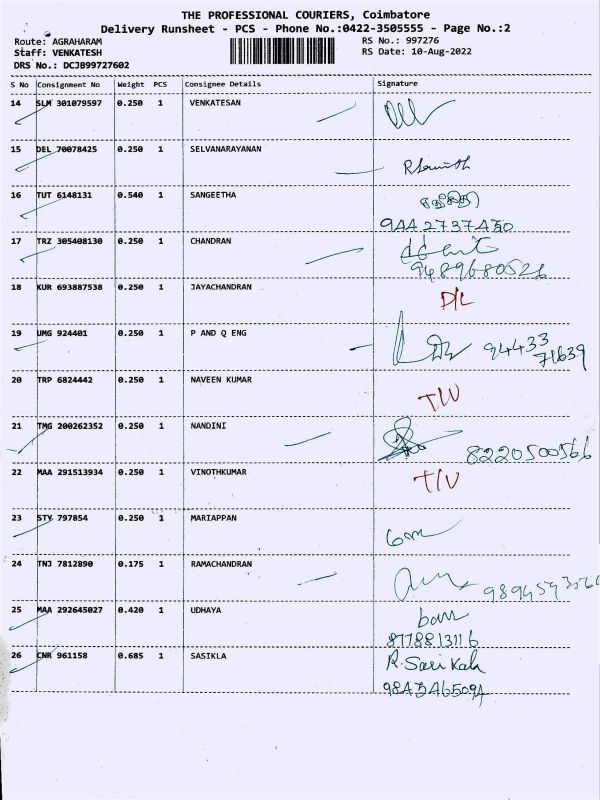 THE PROFESSIONAL COURIERS, Coimbatore
Delivery Runsheet - PCS - Phone No.:0422-3505555 - Page No.:2
Route: AGRAHARAM
RS No.: 997276
Staff: VENKATESH
RS Date: 10-Aug-2022
DRS No.: DCJB99727602
S No Consignment No Weight PCS Consignee Details Signature
14 SLM 301079597 0.250 1 VENKATESAN
15 DEL 70078425 0.250 1 SELVANARAYANAN
16 TUT 6148131 0.540 1 SANGEETHA
9442737450
17 TRZ 305408130 0.250 1 CHANDRAN
9489680526
18 KUR 693887538 0.250 1 JAYACHANDRAN D/L
19 UMG 924401 0.250 1 P AND Q ENG 94433
71639
20 TRP 6824442 0.250 1 NAVEEN KUMAR
21 TMG 200262352 0.250 1 NANDINI 8220500566
22 MAA 291513934 0.250 1 VINOTHKUMAR
23 STY 797854 0.250 1 MARIAPPAN
24 TNJ 7812890 0.175 1 RAMACHANDRAN
25 MAA 292645027 0.420 1 UDHAYA
8778813116
26 CNR 961158 0.685 1 SASIKLA R. Sasi Kala